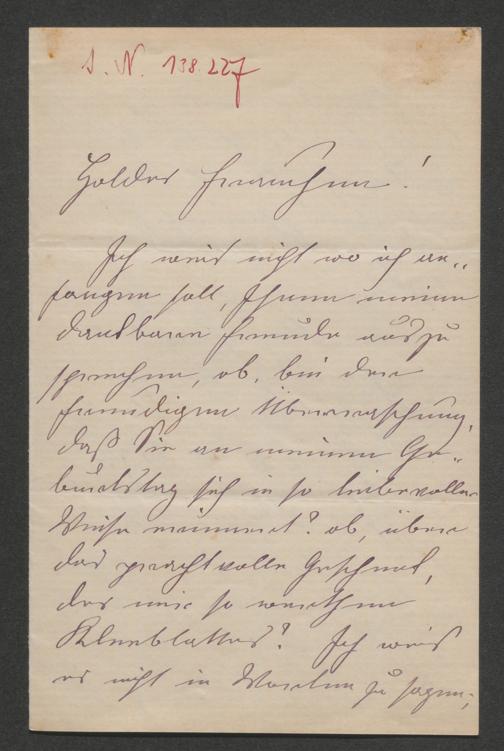 I. N. 138.227
Holdes Frauchen!
Ich weiß nicht wo ich an„
fangen soll, Ihnen meine
dankbare Freude auszu
sprechen, ob, bei der
freudigen Überraschung,
daß Sie an meinen Ge„
burtstag sich in so liebevoller
Weise erinnert? ob, über
das prachtvolle Geschenk,
des mir so werthen
Kleeblattes? Ich weiß
es nicht in Worten zu sagen;